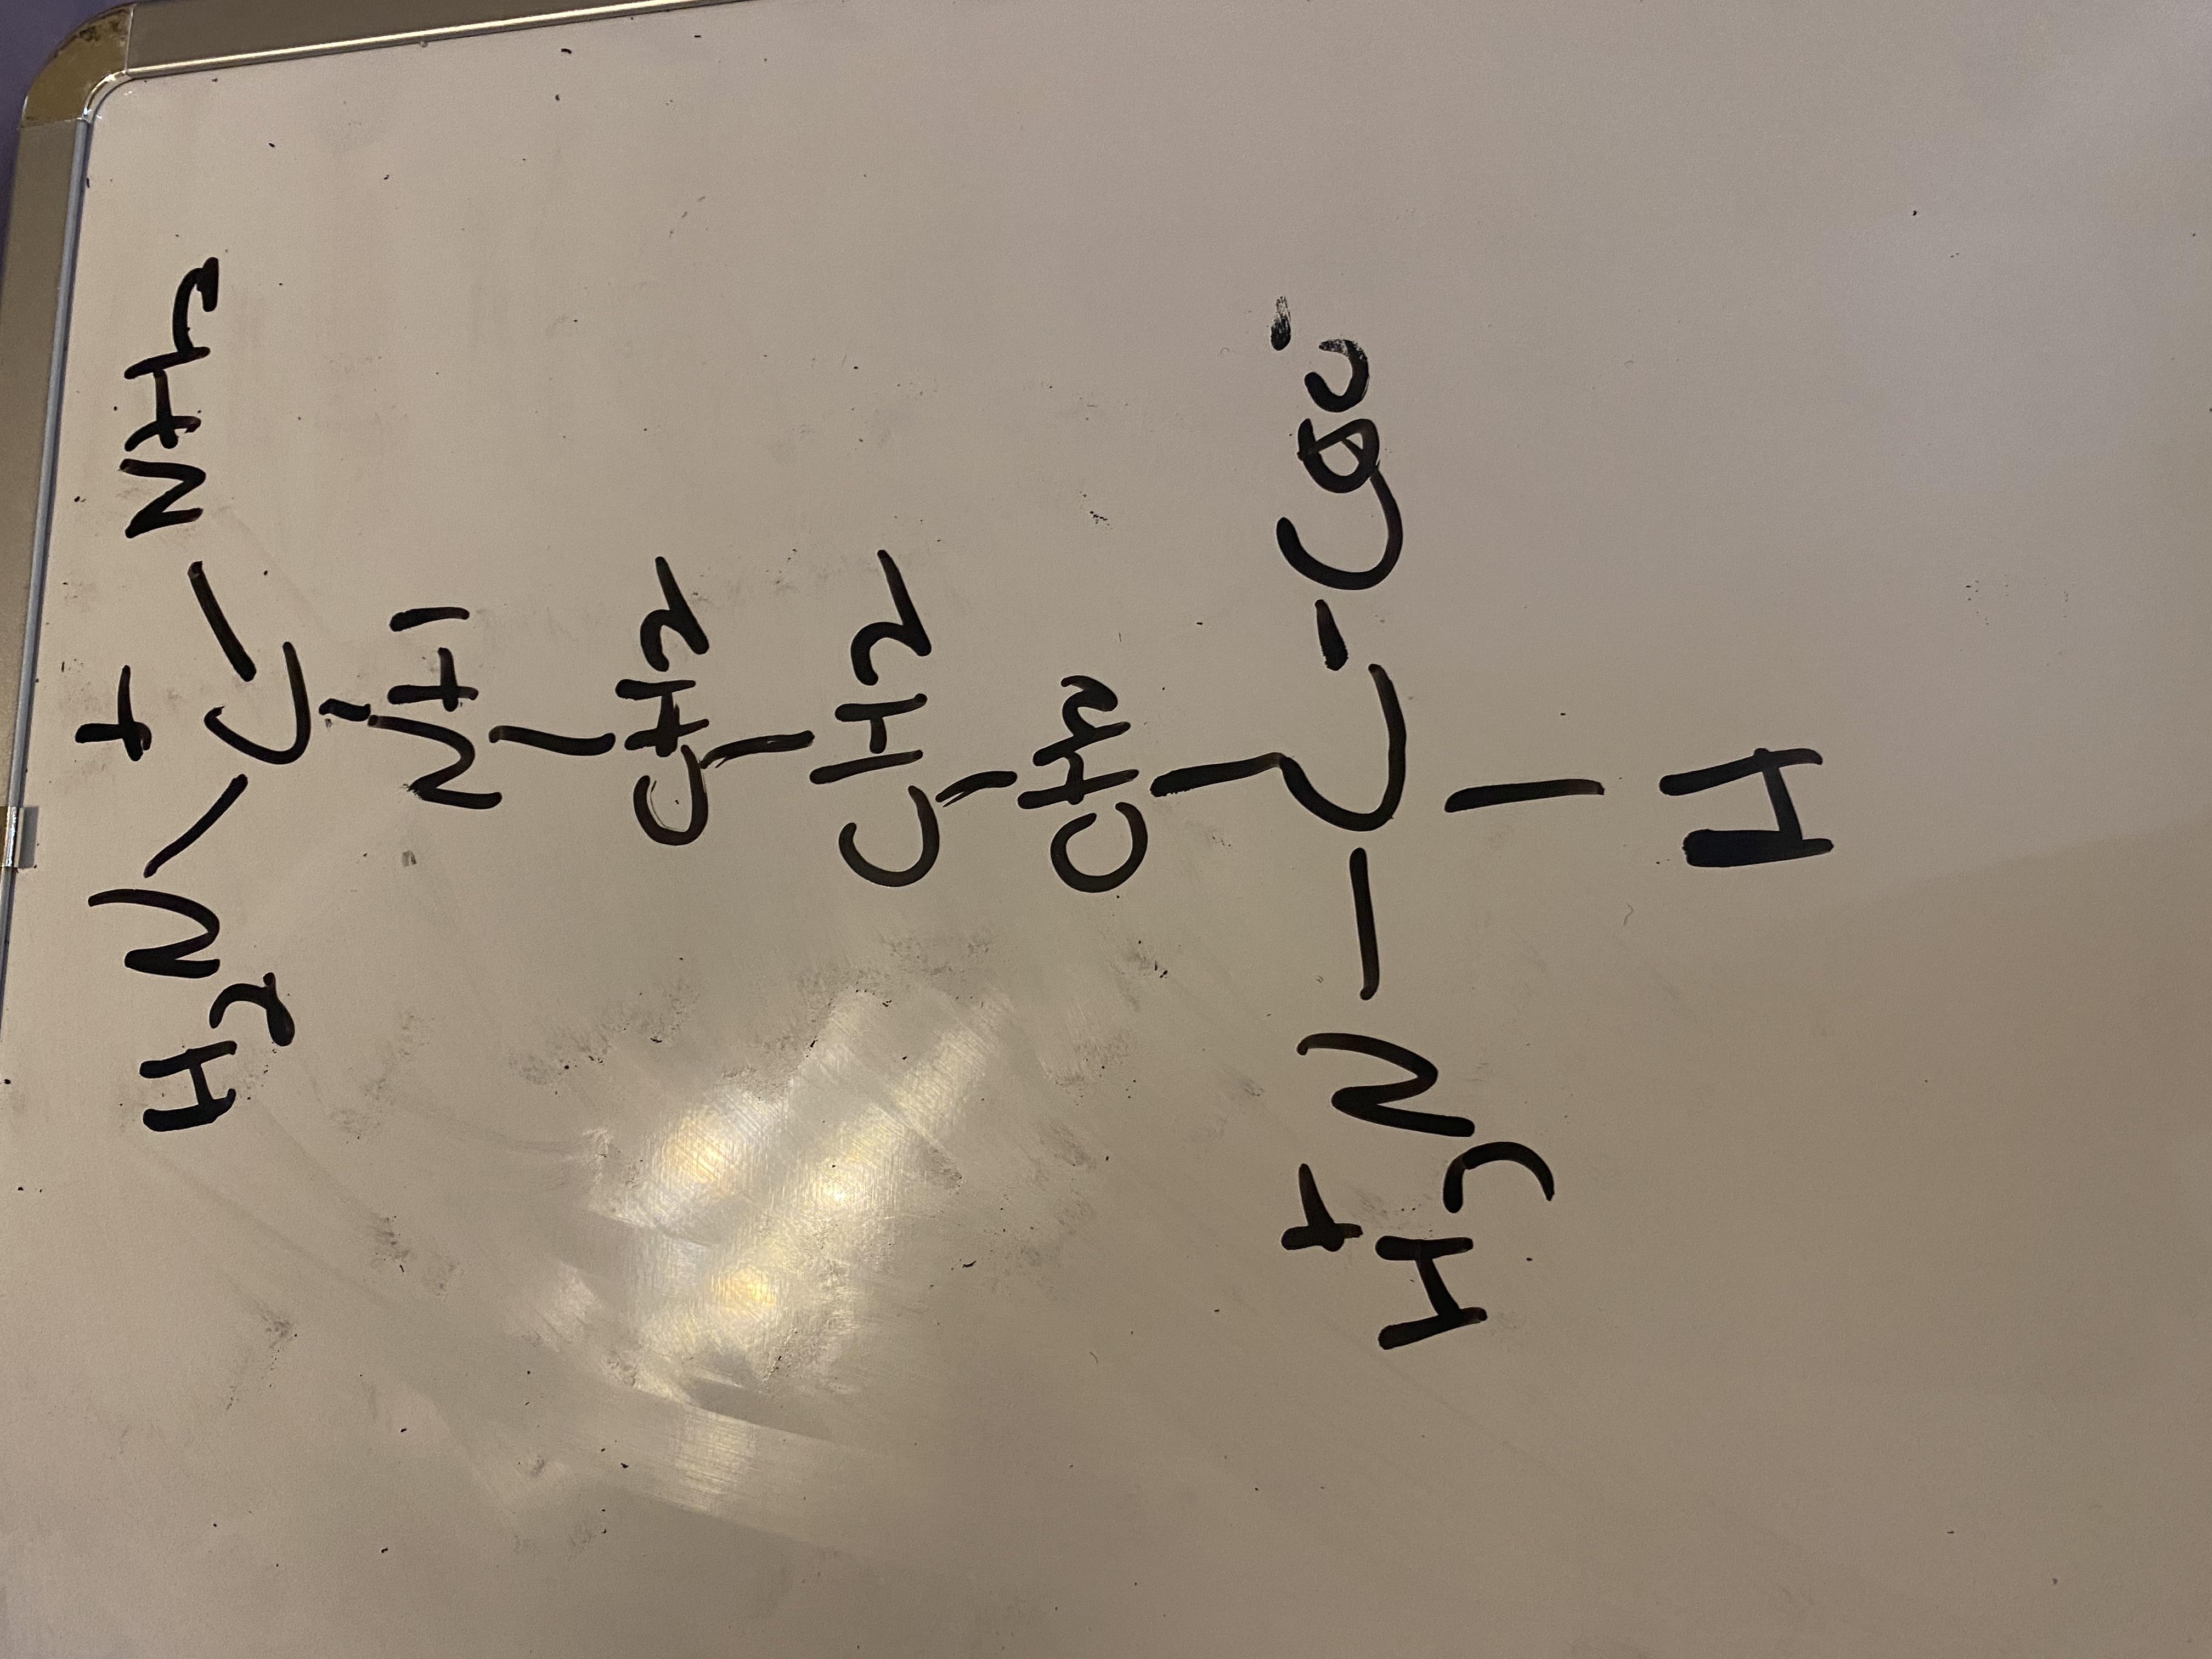 +
H2N \ C / NH2
|
NH
|
CH2
|
CH2
|
CH2
|
H3N+ - C - COO-
|
H